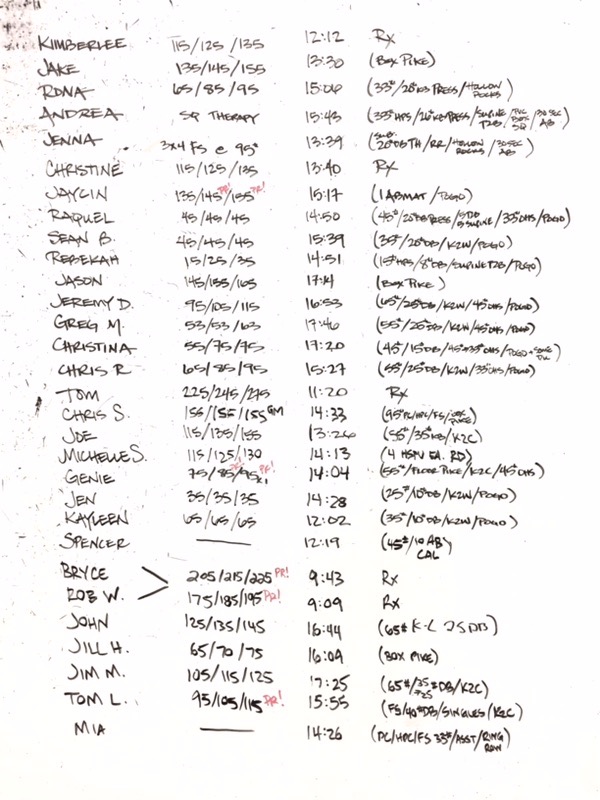 KIMBERLEE 115/125/135 12:12 Rx
JAKE 135/145/155 13:30 (BOX PIKE)
RONA 65/85/95 15:06 (33#/26#KB PRESS/HOLLOW ROCKS)
ANDREA SQ THERAPY 15:43 (33#HPS/26#KB PRESS/SUPINE T2B/PVC BOX SQ/30 SEC AB)
JENNA 3x4 FS @ 95# 13:39 (20#DB TH/RR/HOLLOW ROCKS/30 SEC AB)
CHRISTINE 115/125/135 13:40 Rx
JAYLIN 135/145 PR!/155 PR! 15:17 (1 ABMAT/POGO)
RAQUEL 45/45/45 14:50 (45#/20#DB PRESS/SUPINE/35#OHS/POGO)
SEAN B. 45/45/45 15:39 (35#/20#DB/K2W/POGO)
REBEKAH 15/25/35 14:51 (15#HPS/8#DB/SUPINE T2B/POGO)
JASON 145/155/165 17:14 (BOX PIKE)
JEREMY D. 95/105/115 16:53 (65#/25#DB/K2W/45#OHS/POGO)
GREG M. 53/53/63 17:46 (55#/25#DB/K2W/45#OHS/POGO)
CHRISTINA 55/75/95 17:20 (45#/15#DB/OHS/POGO)
CHRIS R 65/85/95 15:27 (55#/25#DB/K2W/35#OHS/POGO)
TOM 225/245/275 11:20 Rx
CHRIS S. 155/155/155 GM 14:33 (95#PC/HPC/FS/BOX PIKE)
JOE 115/135/155 13:26 (55#/35#KB/K2C)
MICHELLE S. 115/125/130 14:13 (4 HSPU EA. RD)
GENIE 75/85/95 x1 PR! 14:04 (55#/FLOOR PIKE/K2C/45#OHS)
JEN 35/35/35 14:28 (25#/10#DB/K2W/POGO)
KAYLEEN 65/65/65 12:02 (35#/10#DB/K2W/POGO)
SPENCER — 12:19 (45#/10 AB CAL)
BRYCE 205/215/225 PR! 9:43 Rx
ROB W. 175/185/195 PR! 9:09 Rx
JOHN 125/135/145 16:44 (65# K-L 25DB)
JILL H. 65/70/75 16:09 (BOX PIKE)
JIM M. 105/115/125 17:25 (65#/35#DB/K2C)
TOM L. 95/105/115 PR! 15:55 (FS/40#DB/SINGLES/K2C)
MIA — 14:26 (PC/HPC/FS 33#/ASST/RING ROW)